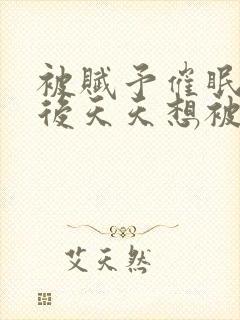 被賦予催眠
後天天想被
艾天然